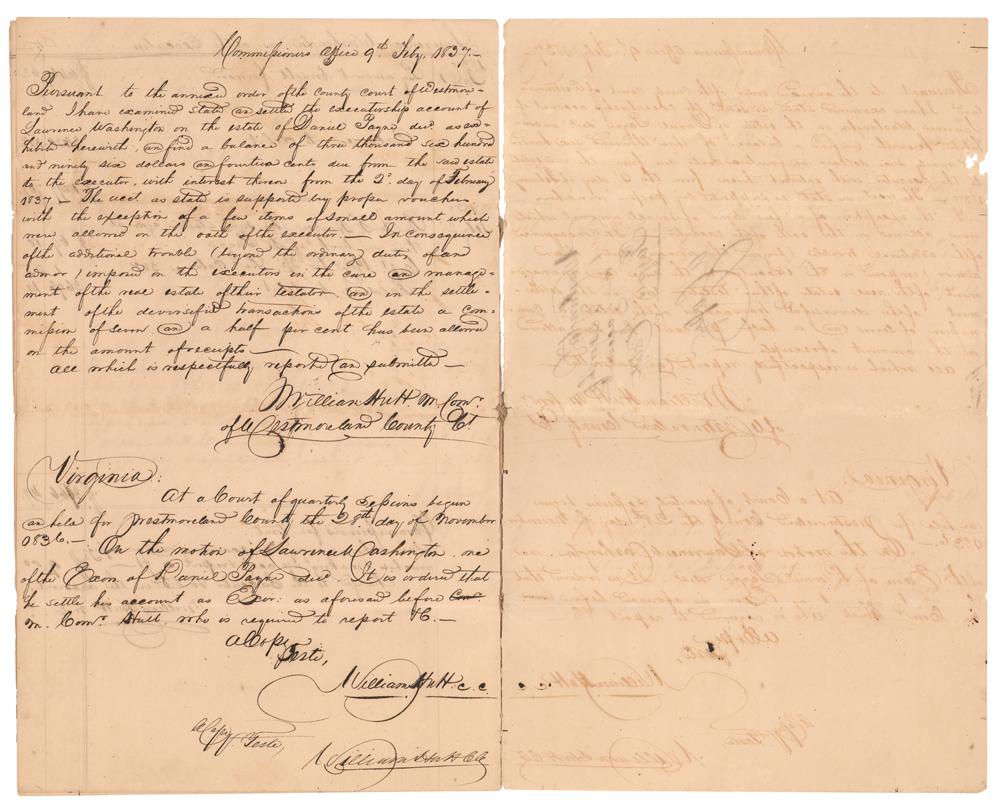 Commissioners Office 9th. Feby. 1837.—
Pursuant to the annexed order of the county court of Westmore-
land I have examined state and settled the executorship account of
Lawrence Washington on the estate of Daniel Payne decd. as ex-
hibited herewith, and find a balance of three thousand six hundred
and ninety six dollars and fourteen cents due from the said estate
to the executor, with interest thereon from the 2d. day of February
1837 — The acct. as stated is supported by proper vouchers
with the exception of a few items of small amount which
were allowed on the oath of the executor. — In consequence
of the additional trouble (beyond the ordinary duty of an
admor) imposed on the executors in the care and manage-
ment of the real estate of their testator, and in the settle-
ment of the diversified transactions of the estate a com-
mission of seven and a half per cent has been allowed
on the amount of receipts —
All which is respectfully reported and submitted —
William Hutt. M Comr.
of Westmoreland County Ct
Virginia:
At a Court of quarterly Sessions begun
and held for Westmoreland County the 28th day of November
1836.—
On the motion of Lawrence Washington one
of the Exors. of Daniel Payne decd. It is ordered that
he settle his account as Exor: as aforesaid before
M. Comr. Hutt who is required to report &c. —
A Copy
Teste,
William Hutt. C. C.
A Copy Teste,
William Hutt CC